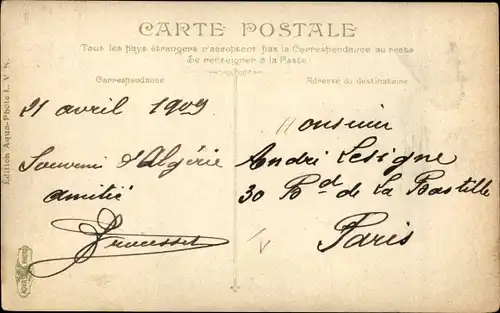 CARTE POSTALE
Tous les pays étrangers n'acceptent pas la Correspondance au recto
(Se renseigner à la Poste)
Correspondance
Adresse du destinataire
21 avril 1909
Souvenir d'Algérie
amitié
Monsieur
André Lesigne
30 Bd de La Bastille
Paris
Édition Aqua-Photo L. V. S.